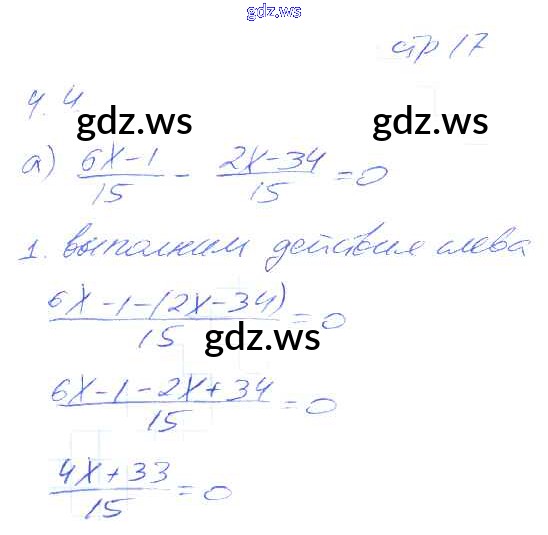 gdz.ws
стр 17
4.4
gdz.ws gdz.ws
а) (6x-1)/15 - (2x-34)/15 = 0
1. выполним действия слева
(6x-1-(2x-34))/15 = 0
gdz.ws
(6x-1-2x+34)/15 = 0
gdz.ws gdz.ws
(4x+33)/15 = 0